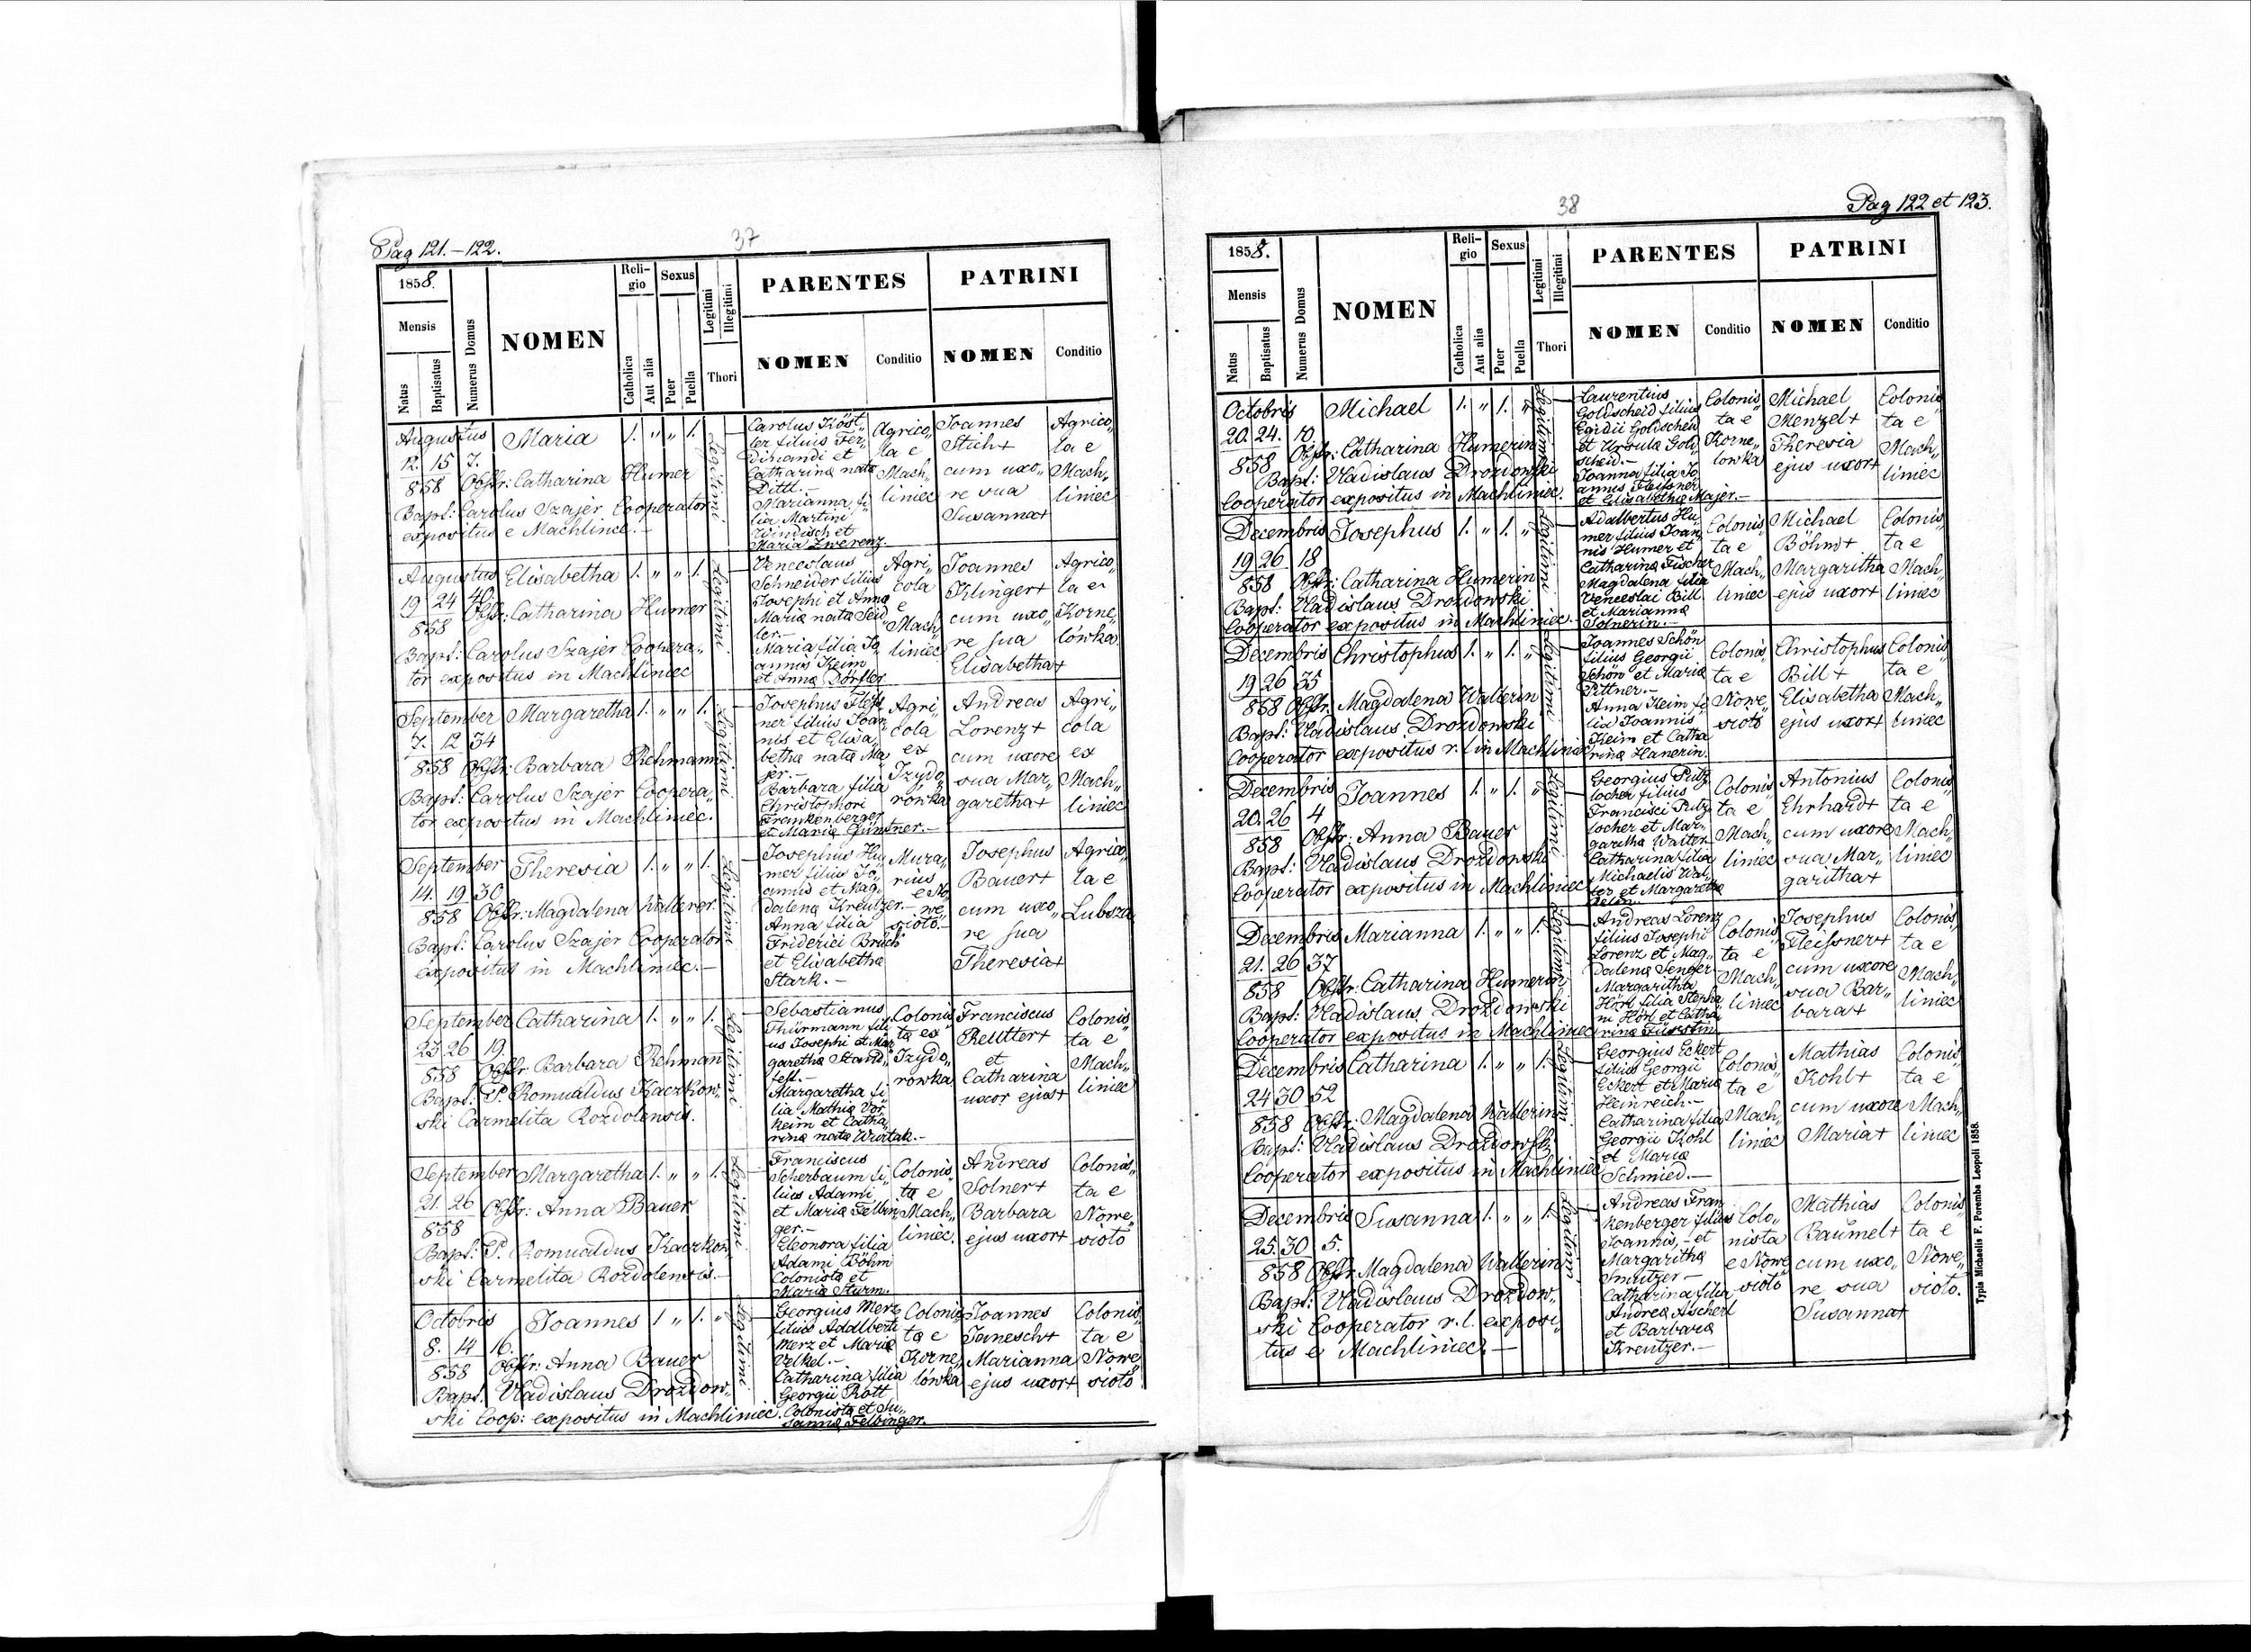 Pag 121.–122.
37
1858.
Mensis
Natus
Baptisatus
Numerus Domus
NOMEN
Reli-
gio
Catholica
Aut alia
Sexus
Puer
Puella
Legitimi
Illegitimi
Thori
PARENTES
NOMEN
Conditio
PATRINI
NOMEN
Conditio
Augustus
12. 15 7.
858
Maria 1. „ „ 1.
Obstr: Catharina Humer
Bapt: Carolus Szajer Cooperator
expositus e Machlince. –
Legitimi
Carolus Köst„
ler filius Fer„
dinandi et
Catharinæ nata
Dittl. –
Marianna fi„
lia Martini
Windisch et
Maria Zwerenz.
Agrico„
la e
Mach„
liniec
Joannes
Stich+
cum uxo„
re sua
Susanna+
Agrico„
la e
Mach„
liniec
Augustus
19 24 40
858
Elisabetha 1. „ „ 1.
Obstr: Catharina Humer
Bapt: Carolus Szajer Coopera„
tor expositus in Machliniec
Legitimi
Venceslaus
Schneider filius
Josephi et Annæ
Mariæ nata Seid
ler. –
Maria filia Jo„
annis Keim
et Annæ Dörfler.
Agri„
cola
e
Mach„
liniec
Joannes
Klinger+
cum uxo„
re sua
Elisabetha+
Agrico„
la e
Korne„
lówka
September
7. 12 34
858
Margaretha 1. „ „ 1.
Obstr: Barbara Rehmann
Bapt: Carolus Szajer Coopera„
tor expositus in Machliniec.
Legitimi
Josephus Fleiß
ner filius Joan
nis et Elisa„
bethæ nata Ma
jer. –
Barbara filia
Christophori
Frankenberger
et Mariæ Güntner. –
Agri„
cola
ex
Izydo„
rowka
Andreas
Lorenz+
cum uxore
sua Mar„
garetha+
Agri„
cola
ex
Mach„
liniec
September
14. 19. 30
858
Theresia 1. „ „ 1.
Obstr: Magdalena Wallerer
Bapt: Carolus Szajer Cooperator
expositus in Machliniec. –
Legitimi
Josephus Hu
mer filius Jo„
annis et Mag„
dalenæ Kreutzer. –
Anna filia
Friderici Brüch
et Elisabethæ
Stark. –
Mura„
rius
e No„
we„
sioto. –
Josephus
Bauer+
cum uxo„
re sua
Theresia+
Agrico„
la e
Lubsza
September
23 26 19.
858
Catharina 1. „ „ 1.
Obstr Barbara Rehman
Bapt: P. Romualdus Kaczkow„
ski Carmelita Rozdolensis.
Legitimi
Sebastianus
Thürmann fili„
us Josephi et Mar
garethæ Stand„
fest. –
Margaretha fi„
lia Mathiæ Vor„
keim et Catha„
rinæ nata Wurtak. –
Colonis„
ta ex
Izydo„
rowka
Franciscus
Reutter+
et
Catharina
uxor ejus+
Colonis„
ta e
Mach„
liniec
September
21. 26
858
Margaretha 1. „ „ 1.
Obstr: Anna Bauer
Bapt: P. Romualdus Kaczkow„
ski Carmelita Rozdolensis. –
Legitimi
Franciscus
Scherbaum fi„
lius Adami
et Mariæ Felbin
ger. –
Eleonora filia
Adami Böhm
Colonistæ et
Mariæ Sturm.
Colonis„
ta e
Mach„
liniec.
Andreas
Solner+
Barbara
ejus uxor+
Colonis„
ta e
Nowe„
sioto
Octobris
8. 14 16.
858
Joannes 1 „ 1. „
Obstr: Anna Bauer
Bapt. Vladislaus Drozdow„
ski Coop: expositus in Machliniec.
Legitimi
Georgius Merz
filius Adalberti
Merz et Mariæ
Velkel. –
Catharina filia
Georgii Rott
Colonistæ et Su„
sannæ Felbinger.
Colonis„
ta e
Korne„
lówka
Joannes
Janesch+
Marianna
ejus uxor+
Colonis„
ta e
Nowe„
sioto
38
Pag 122 et 123.
1858.
Mensis
Natus
Baptisatus
Numerus Domus
NOMEN
Reli-
gio
Catholica
Aut alia
Sexus
Puer
Puella
Legitimi
Illegitimi
Thori
PARENTES
NOMEN
Conditio
PATRINI
NOMEN
Conditio
Octobris
20. 24. 10.
858
Michael 1. „ 1. „
Obstr: Catharina Humerin
Bapt: Vladislaus Drozdowski
Cooperator expositus in Machliniec.
Legitimi
Laurentius
Goldscheid filius
Egidii Goldscheid
et Ursulæ Gold„
scheid. –
Joanna filia Jo
annis Fleißner
et Elisabethæ Majer. –
Colonis„
ta e
Korne„
lowka
Michael
Menzel+
Theresia
ejus uxor+
Colonis„
ta e
Mach„
liniec
Decembris
19 26 18
858
Josephus 1. „ 1. „
Obstr: Catharina Humerin
Bapt: Vladislaus Drozdowski
Cooperator expositus in Machliniec. –
Legitimi
Adalbertus Hu„
mer filius Joan„
nis Humer et
Catharinæ Fischer
Magdalena filia
Venceslai Bill
et Mariannæ
Solnerin. –
Colonis„
ta e
Mach„
liniec
Michael
Böhm+
Margaritha
ejus uxor+
Colonis„
ta e
Mach„
liniec
Decembris
19 26 35
858
Christophus 1. „ 1. „
Obstr. Magdalena Wallerin
Bapt: Vladislaus Drozdowski
Cooperator expositus r. l. in Machliniec
Legitimi
Joannes Schön
filius Georgii
Schön et Mariæ
Pittner. –
Anna Keim fi„
lia Joannis
Keim et Catha
rinæ Hanerin.
Colonis„
ta e
Nowe„
sioto
Christophus
Bill+
Elisabetha
ejus uxor+
Colonis„
ta e
Mach„
liniec
Decembris
20. 26 4
858
Joannes 1. „ 1. „
Obstr: Anna Bauer
Bapt: Vladislaus Drozdowski
Cooperator expositus in Machliniec
Legitimi
Georgius Putz
locher filius
Francisci Putz„
locher et Mar„
garithæ Walter
Catharina filia
Michaelis Wal„
ter et Margarethæ
Colonis„
ta e
Mach„
liniec
Antonius
Ehrhard+
cum uxore
sua Mar„
garitha+
Colonis„
ta e
Mach„
liniec
Decembris
21. 26 37
858
Marianna 1. „ „ 1.
Obstr: Catharina Humerin
Bapt: Vladislaus Drozdowski
Cooperator expositus in Machliniec
Legitimi
Andreas Lorenz
filius Josephi
Lorenz et Mag„
dalenæ Senger
Margaritha
Hörl filia Stepha
ni Hörl et Catha„
rinæ Fürstin.
Colonis„
ta e
Mach„
liniec
Josephus
Fleißner+
cum uxore
sua Bar„
bara+
Colonis„
ta e
Mach„
liniec
Decembris
24 30 52
858
Catharina 1. „ „ 1.
Obstr: Magdalena Wallerin
Bapt: Vladislaus Drozdowski
Cooperator expositus in Machliniec
Legitimi
Georgius Eckert
filius Georgii
Eckert et Mariæ
Heinreich. –
Catharina filia
Georgii Kohl
et Mariæ
Schmied. –
Colonis„
ta e
Mach„
liniec
Mathias
Kohl+
cum uxore
Maria+
Colonis„
ta e
Mach„
liniec
Decembris
25. 30 5.
858
Susanna 1. „ „ 1.
Obstr. Magdalena Wallerin
Bapt: Vladislaus Drozdow„
ski Cooperator r. l. exposi„
tus e Machliniec. –
Legitimi
Andreas Fran
kenberger filius
Joannis, – et
Margarithæ
Smutzer –
Catharina filia
Andreæ Ascherl
et Barbaræ
Kreutzer. –
Colo„
nista
e Nowe
sioto
Mathias
Baümel+
cum uxo„
re sua
Susanna+
Colonis„
ta e
Nowe„
sioto.
Typis Michaelis F. Poremba Leopoli 1858.